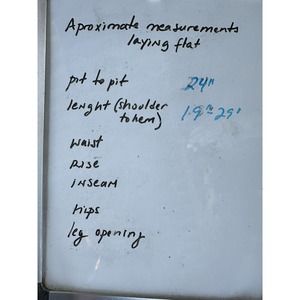 Aproximate measurements
laying flat
pit to pit 24"
lenght (shoulder
to hem) 29"
waist
Rise
inseam
hips
leg opening